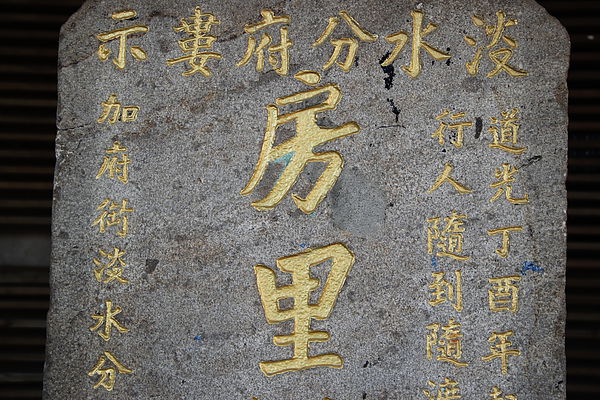 淡水分府婁示
道光丁酉年
行人隨到隨渡
房里
加府銜淡水分